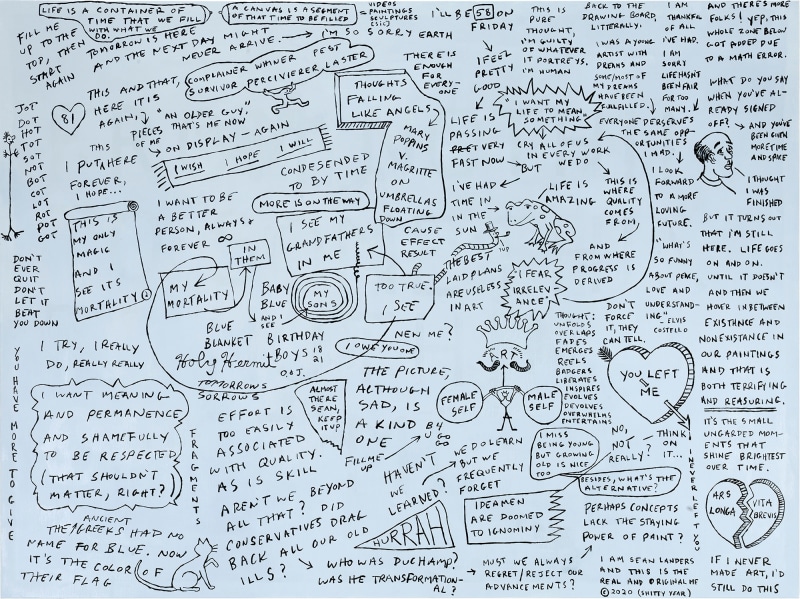 LIFE IS A CONTAINER OF
TIME THAT WE FILL
WITH WHAT WE
DO.
A CANVAS IS A SEGMENT
OF THAT TIME TO BE FILLED
VIDEOS
PAINTINGS
SCULPTURES
(SIC)
FILL ME
UP TO THE
TOP, THEN
START
AGAIN
TOMORROW IS HERE
AND THE NEXT DAY MIGHT
NEVER ARRIVE.
I'M SO SORRY EARTH
I'LL BE 58 ON
FRIDAY
THIS AND THAT,
HERE IT IS
AGAIN,
COMPLAINER WHINER PEST
SURVIVOR PERCIVIERER LASTER
THERE IS
ENOUGH
FOR EVERY-
ONE
I FEEL
PRETTY
GOOD
THIS IS
PURE
THOUGHT,
I'M GUILTY
OF WHATEVER
IT PORTREYS.
I'M HUMAN
BACK TO THE
DRAWING BOARD,
LITTERALLY.
I WAS A YOUNG
ARTIST WITH
DREAMS AND
SOME/MOST OF
MY DREAMS
HAVE BEEN
FULFILLED.
I AM
THANKFUL
OF ALL
I'VE HAD.
I AM
SORRY
LIFE HASN'T
BEEN FAIR
FOR TOO
MANY.
AND THERE'S MORE
FOLKS! YEP, THIS
WHOLE ZONE BELOW
GOT ADDED DUE
TO A MATH ERROR.
WHAT DO YOU SAY
WHEN YOU'VE AL-
READY SIGNED
OFF?
AND YOU'VE
BEEN GIVEN
MORE TIME
AND SPACE
I THOUGHT
I WAS
FINISHED
BUT IT TURNS OUT
THAT I'M STILL
HERE. LIFE GOES
ON AND ON.
UNTIL IT DOESN'T
AND THEN WE
HOVER IN BETWEEN
EXISTENCE AND
NONEXISTANCE IN
OUR PAINTINGS
AND THAT IS
BOTH TERRIFYING
AND REASURING.
IT'S THE SMALL
UNGARDED MOM-
ENTS THAT
SHINE BRIGHTEST
OVER TIME.
ARS
LONGA
VITA
BREVIS
IF I NEVER
MADE ART, I'D
STILL DO THIS
JOT
DOT
HOT
TOT
SOT
NOT
BOT
COT
LOT
ROT
POT
GOT
81
PIECES
OF ME
"AN OLDER GUY."
THAT'S ME NOW
ON DISPLAY - AGAIN
I WISH I HOPE I WILL
THIS
I PUT HERE
FOREVER,
I HOPE...
THOUGHTS
FALLING
LIKE ANGELS
MARY
POPPINS
V.
MAGRITTE
ON
UMBRELLAS
FLOATING
DOWN
LIFE IS
PASSING
VERY
FAST NOW
"I WANT MY
LIFE TO MEAN
SOMETHING"
CRY ALL OF US
IN EVERY WORK
WE DO
BUT
EVERYONE DERSERVE'S
THE SAME OPP-
ORTUNITIES
I HAD.
I LOOK
FORWARD
TO A MORE
LOVING
FUTURE.
"WHAT'S
SO FUNNY
ABOUT PEACE,
LOVE AND
UNDERSTAND-
ING."
ELVIS
COSTELLO
CONDESENDED
TO BY TIME
I'VE HAD
TIME IN
IN THE
SUN
LIFE IS
AMAZING
THIS IS
WHERE
QUALITY
COMES
FROM,
AND
FROM WHERE
PROGRESS IS
DERIVED
THIS IS
MY ONLY
MAGIC
AND I
SEE IT'S
MORTALITY
I WANT TO BE
A BETTER
PERSON, ALWAYS &
FOREVER ∞
MORE IS ON THE WAY
I SEE MY
GRANDFATHERS
IN ME
CAUSE
EFFECT
RESULT
'TUP
THE BEST
LAID PLANS
ARE USELESS
IN ART
"I FEAR
IRRELEV-
ANCE"
DON'T
EVER
QUIT
DON'T
LET IT
BEAT
YOU DOWN
MY
MORTALITY
IN
THEM
BABY
BLUE
AND I
SEE
MY
SONS
TOO TRUE.
I SEE
BLUE
BLANKET
BIRTHDAY
BOYS 18
21
Q.O.J.
NEN ME?
I OWE YOU ONE
Holy Hermit
TOMORROWS
SORROWS
DON'T
FORCE
IT, THEY
CAN TELL.
THOUGHT:
UNFOLDS
OVERLAPS
FADES
EMERGES
REELS
BADGERS
LIBERATES
INSPIRES
EVOLVES
DEVOLVES
OVERWHELMS
ENTERTAINS
ART
FEMALE
SELF
MALE
SELF
YOU LEFT
ME
I NEVER LEFT YOU
YOU HAVE MORE TO GIVE
I TRY, I REALLY
DO, REALLY REALLY
I WANT MEANING
AND PERMANENCE
AND SHAMEFULLY
TO BE RESPECTED
(THAT SHOULDN'T
MATTER, RIGHT?)
FRAGMENTS
ALMOST
THERE
SEAN,
KEEP IT
UP
THE PICTURE,
ALTHOUGH
SAD, IS
A KIND
ONE
EFFORT IS
TOO EASILY
ASSOCIATED
WITH QUALITY.
AS IS SKILL
AREN'T WE BEYOND
ALL THAT? DID
CONSERVATIVES DRAG
BACK ALL OUR OLD
ILLS?
FILL ME
UP
B4
U GO
GO
HAVEN'T
WE
LEARNED?
WE DO LEARN
BUT WE
FREQUENTLY
FORGET
I MISS
BEING YOUNG
BUT GROWING
OLD IS NICE
TOO
NO,
NOT
REALLY?
THINK
ON
IT...
BESIDES, WHAT'S THE
ALTERNATIVE?
IDEAMEN
ARE DOOMED
TO IGNOMINY
PERHAPS CONCEPTS
LACK THE STAYING
POWER OF PAINT?
HURRAH
ANCIENT
THE GREEKS HAD NO
NAME FOR BLUE. NOW
IT'S THE COLOR OF
THEIR FLAG
WHO WAS DUCHAMP?
WAS HE TRANSFORMATION-
AL?
MUST WE ALWAYS
REGRET/REJECT OUR
ADVANCEMENTS?
I AM SEAN LANDERS
AND THIS IS THE
REAL AND ORIGINAL ME
©2020 (SHITTY YEAR)